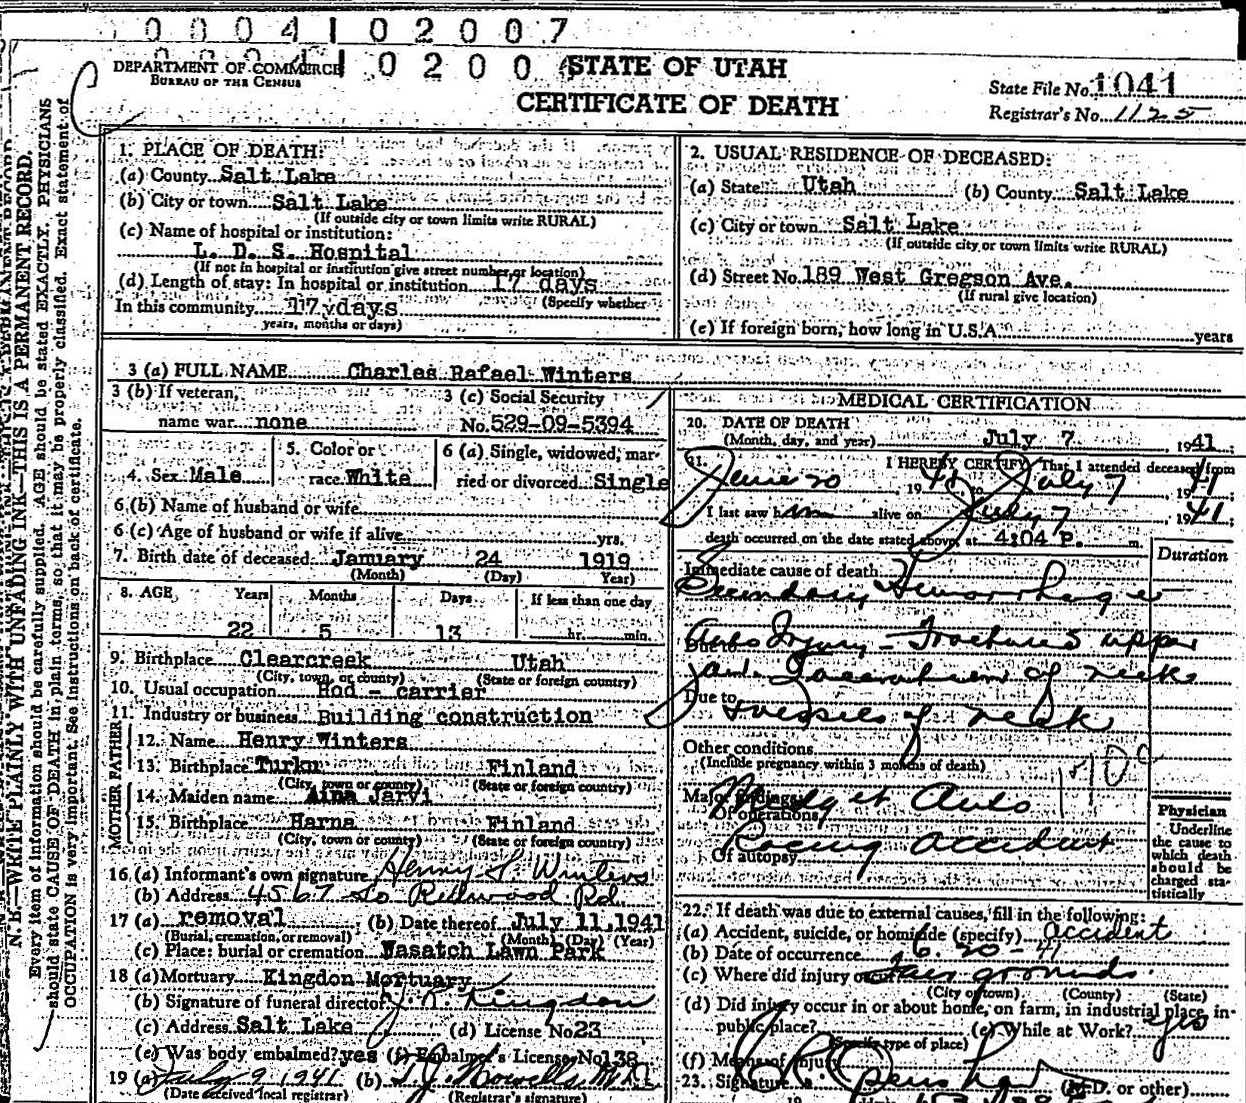 0004102007
0004102007
DEPARTMENT OF COMMERCE
BUREAU OF THE CENSUS
STATE OF UTAH
CERTIFICATE OF DEATH
State File No. 1041
Registrar's No. 1125
N. B.—WRITE PLAINLY WITH UNFADING INK—THIS IS A PERMANENT RECORD.
Every item of information should be carefully supplied. AGE should be stated EXACTLY. PHYSICIANS
should state CAUSE OF DEATH in plain terms, so that it may be properly classified. Exact statement of
OCCUPATION is very important. See instructions on back of certificate.
1. PLACE OF DEATH:
(a) County Salt Lake
(b) City or town Salt Lake
(If outside city or town limits write RURAL)
(c) Name of hospital or institution:
L. D. S. Hospital
(If not in hospital or institution give street number or location)
(d) Length of stay: In hospital or institution 17 days
(Specify whether
In this community 17 days
years, months or days)
2. USUAL RESIDENCE OF DECEASED:
(a) State Utah (b) County Salt Lake
(c) City or town Salt Lake
(If outside city or town limits write RURAL)
(d) Street No. 189 West Gregson Ave.
(If rural give location)
(e) If foreign born, how long in U.S.A. years
3 (a) FULL NAME Charles Rafael Winters
3 (b) If veteran, name war none
3 (c) Social Security No. 529-09-5394
4. Sex Male
5. Color or race White
6 (a) Single, widowed, married or divorced Single
6 (b) Name of husband or wife
6 (c) Age of husband or wife if alive yrs.
7. Birth date of deceased January 24 1919
(Month) (Day) (Year)
8. AGE Years Months Days If less than one day
22 5 13 hr. min.
9. Birthplace Clearcreek Utah
(City, town, or county) (State or foreign country)
10. Usual occupation Hod - carrier
11. Industry or business Building construction
FATHER
12. Name Henry Winters
13. Birthplace Turku Finland
(City, town or county) (State or foreign country)
MOTHER
14. Maiden name Aina Jarvi
15. Birthplace Harna Finland
(City, town or county) (State or foreign country)
16. (a) Informant's own signature Henry S. Winters
(b) Address 4567 So Redwood Rd.
17 (a) removal (b) Date thereof July 11, 1941
(Burial, cremation, or removal) (Month) (Day) (Year)
(c) Place: burial or cremation Wasatch Lawn Park
18 (a) Mortuary Kingdon Mortuary
(b) Signature of funeral director Kingdon
(c) Address Salt Lake (d) License No. 23
(e) Was body embalmed? yes (f) Embalmer's License No. 138
19 (a) July 9 1941 (b)
(Date received local registrar) (Registrar's signature)
MEDICAL CERTIFICATION
20. DATE OF DEATH
(Month, day, and year) July 7, 1941
21. I HEREBY CERTIFY, That I attended deceased from
June 20, 1941, to July 7, 1941
I last saw him alive on July 7, 1941;
death occurred on the date stated above, at 4:04 P. m
Duration
Immediate cause of death
Secondary Hemorrhage
Due to Auto Injury - Fractures upper
jaw. Laceration of neck
Due to vessels of neck
Other conditions
(Include pregnancy within 3 months of death)
Major findings:
Of operations
Midget Auto
Racing Accident
Of autopsy
Physician
Underline
the cause to
which death
should be
charged sta-
tistically
22. If death was due to external causes, fill in the following:
(a) Accident, suicide, or homicide (specify) accident
(b) Date of occurrence 6-20-41
(c) Where did injury occur Fair grounds
(City or town) (County) (State)
(d) Did injury occur in or about home, on farm, in industrial place, in
public place? (e) While at Work? yes
(Specify type of place)
(f) Means of injury
23. Signature (M.D. or other)